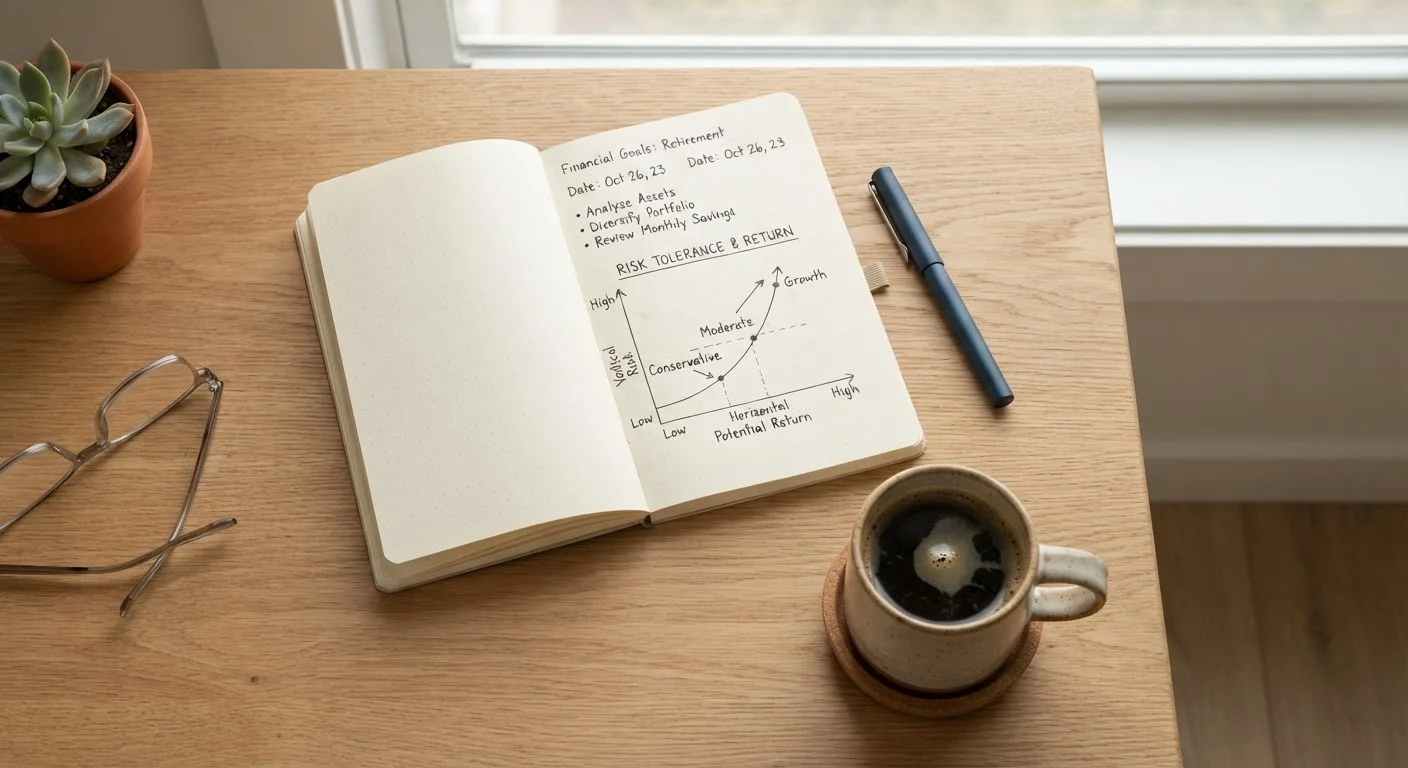 Financial Goals: Retirement
Date: Oct 26, 23 Date: Oct 26, 23
• Analyse Assets
• Diversify Portfolio
• Review Monthly Savings
RISK TOLERANCE & RETURN
High
Growth
Moderate
Conservative
Risk
Low
Low
Horizontal
High
Potential Return